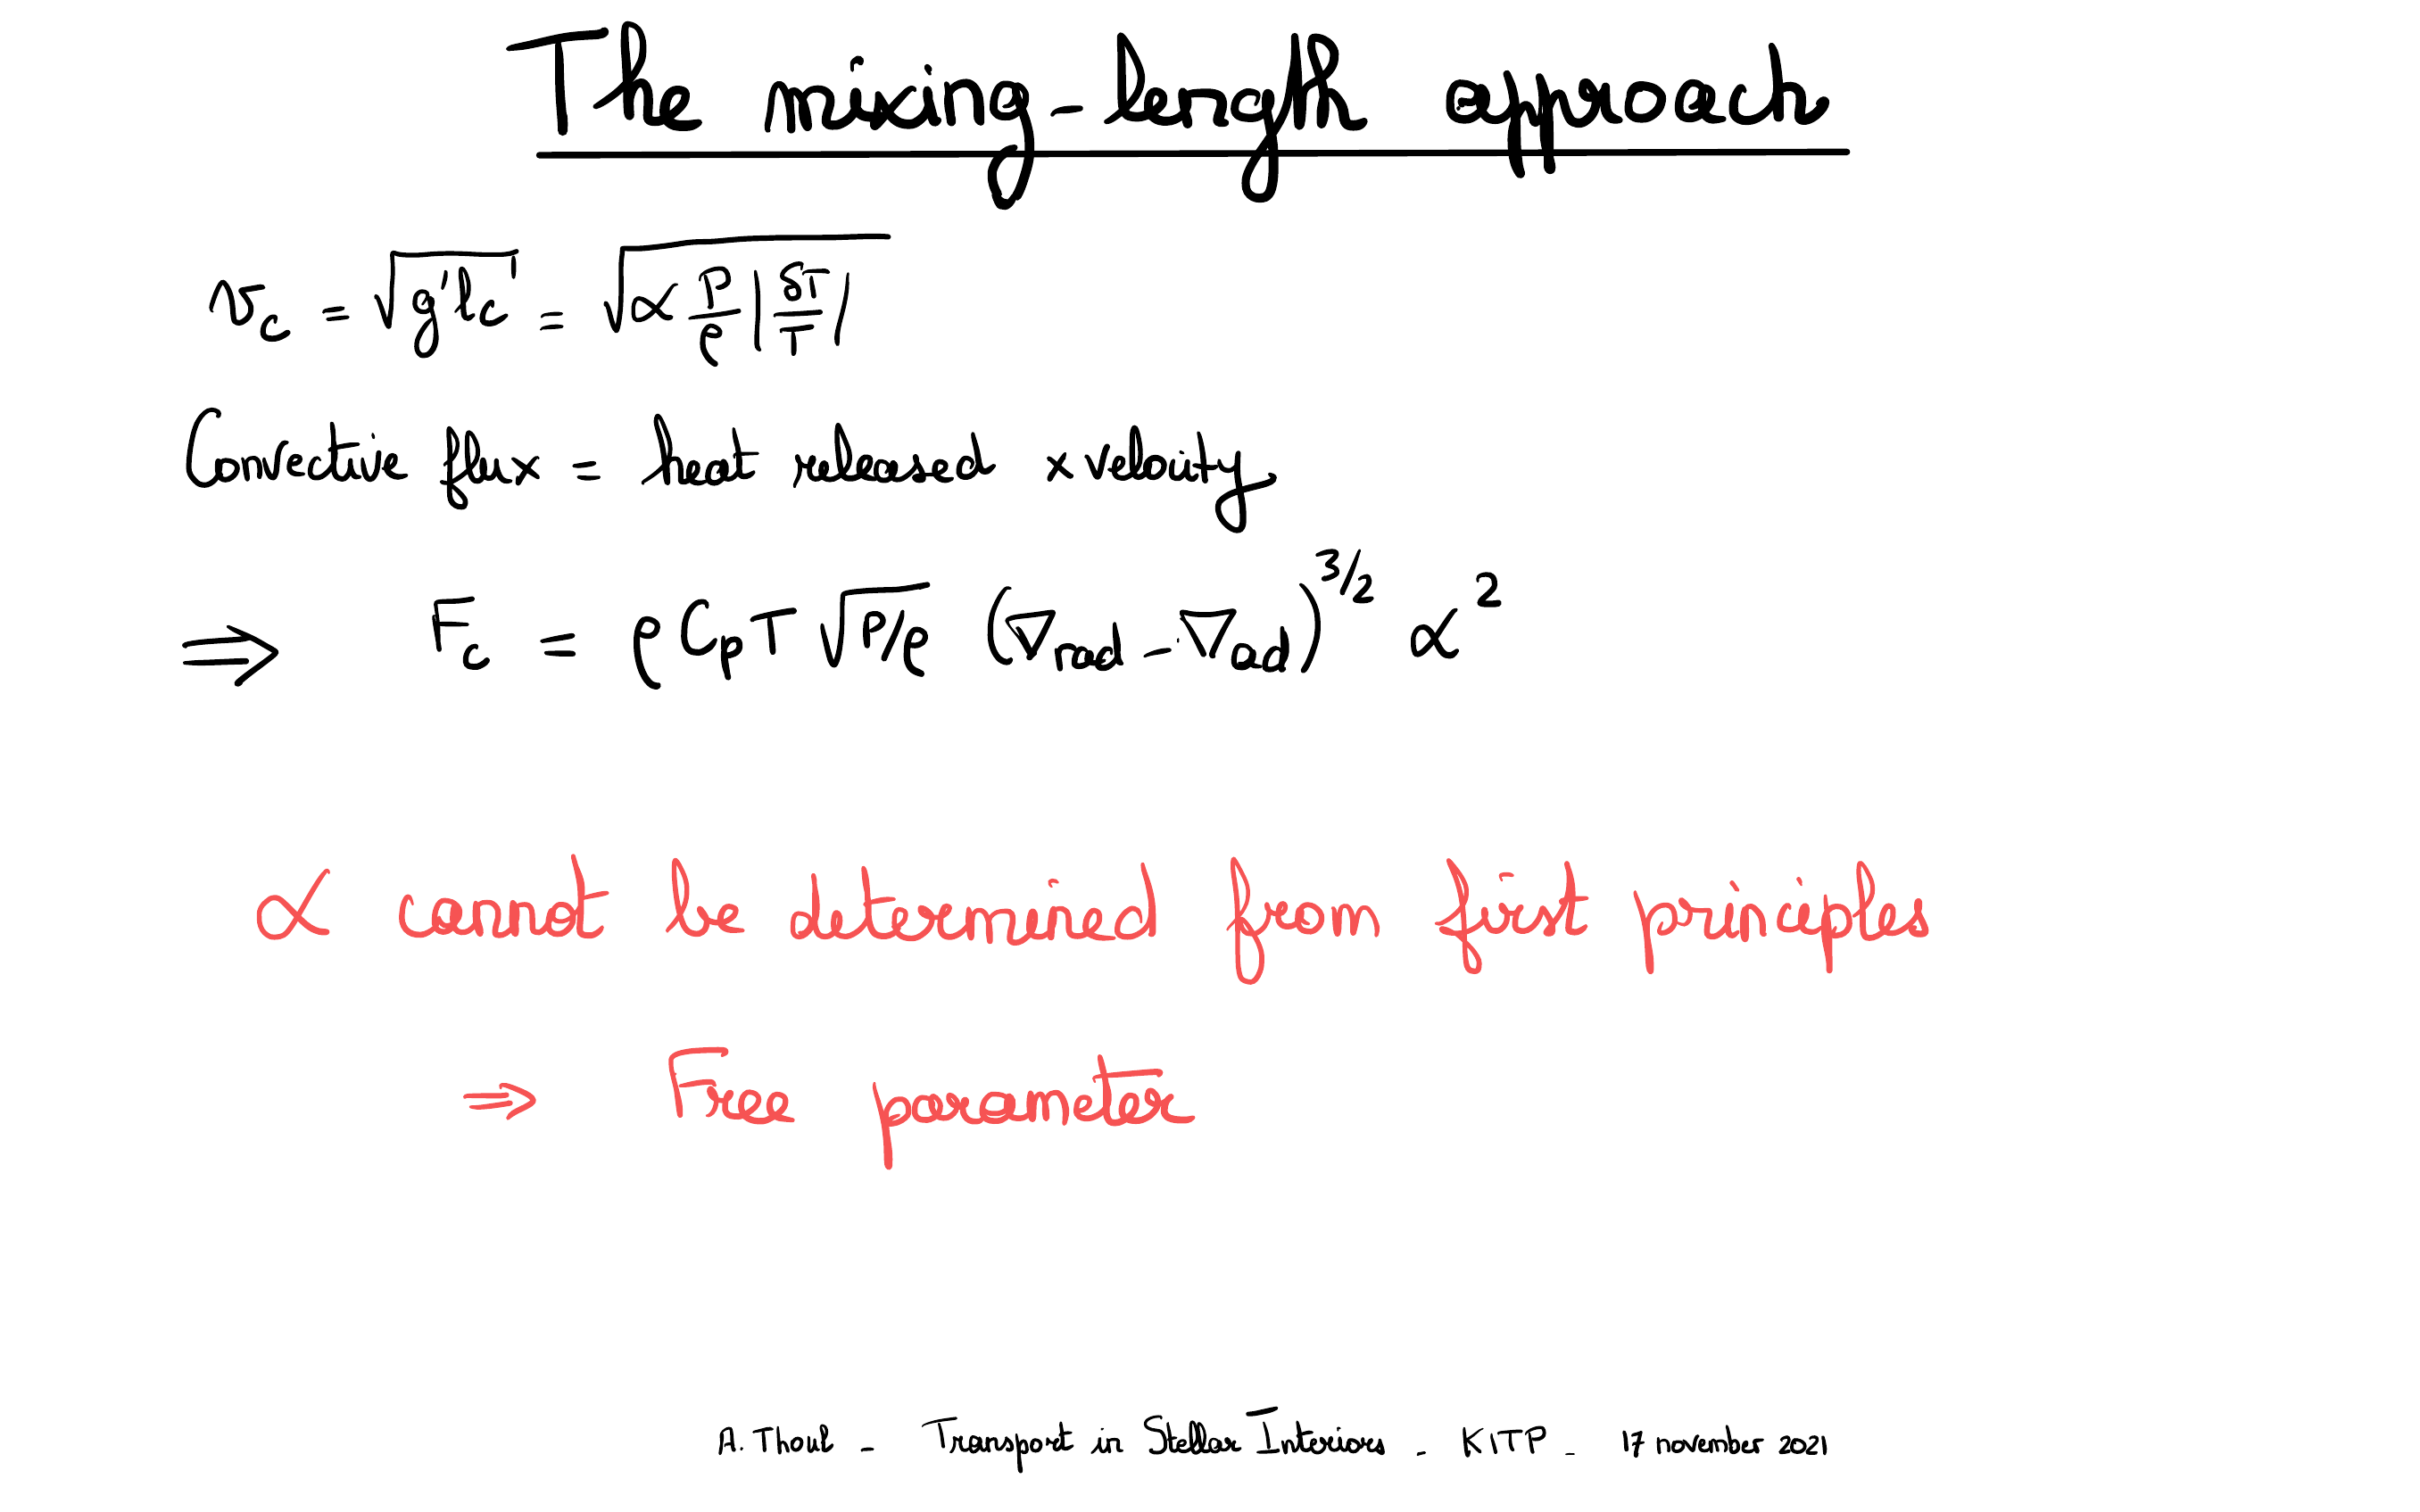 The mixing-length approach
v_c = √(g'l_c) = √(α P/ρ |δT/T|)
Convective flux = heat released x velocity
⇒ F_c = ρ C_p T √(P/ρ) (∇_rad - ∇_ad)^{3/2} α^2
α cannot be determined from first principles
⇒ Free parameter
A. Thoul - Transport in Stellar Interiors - KITP - 17 november 2021